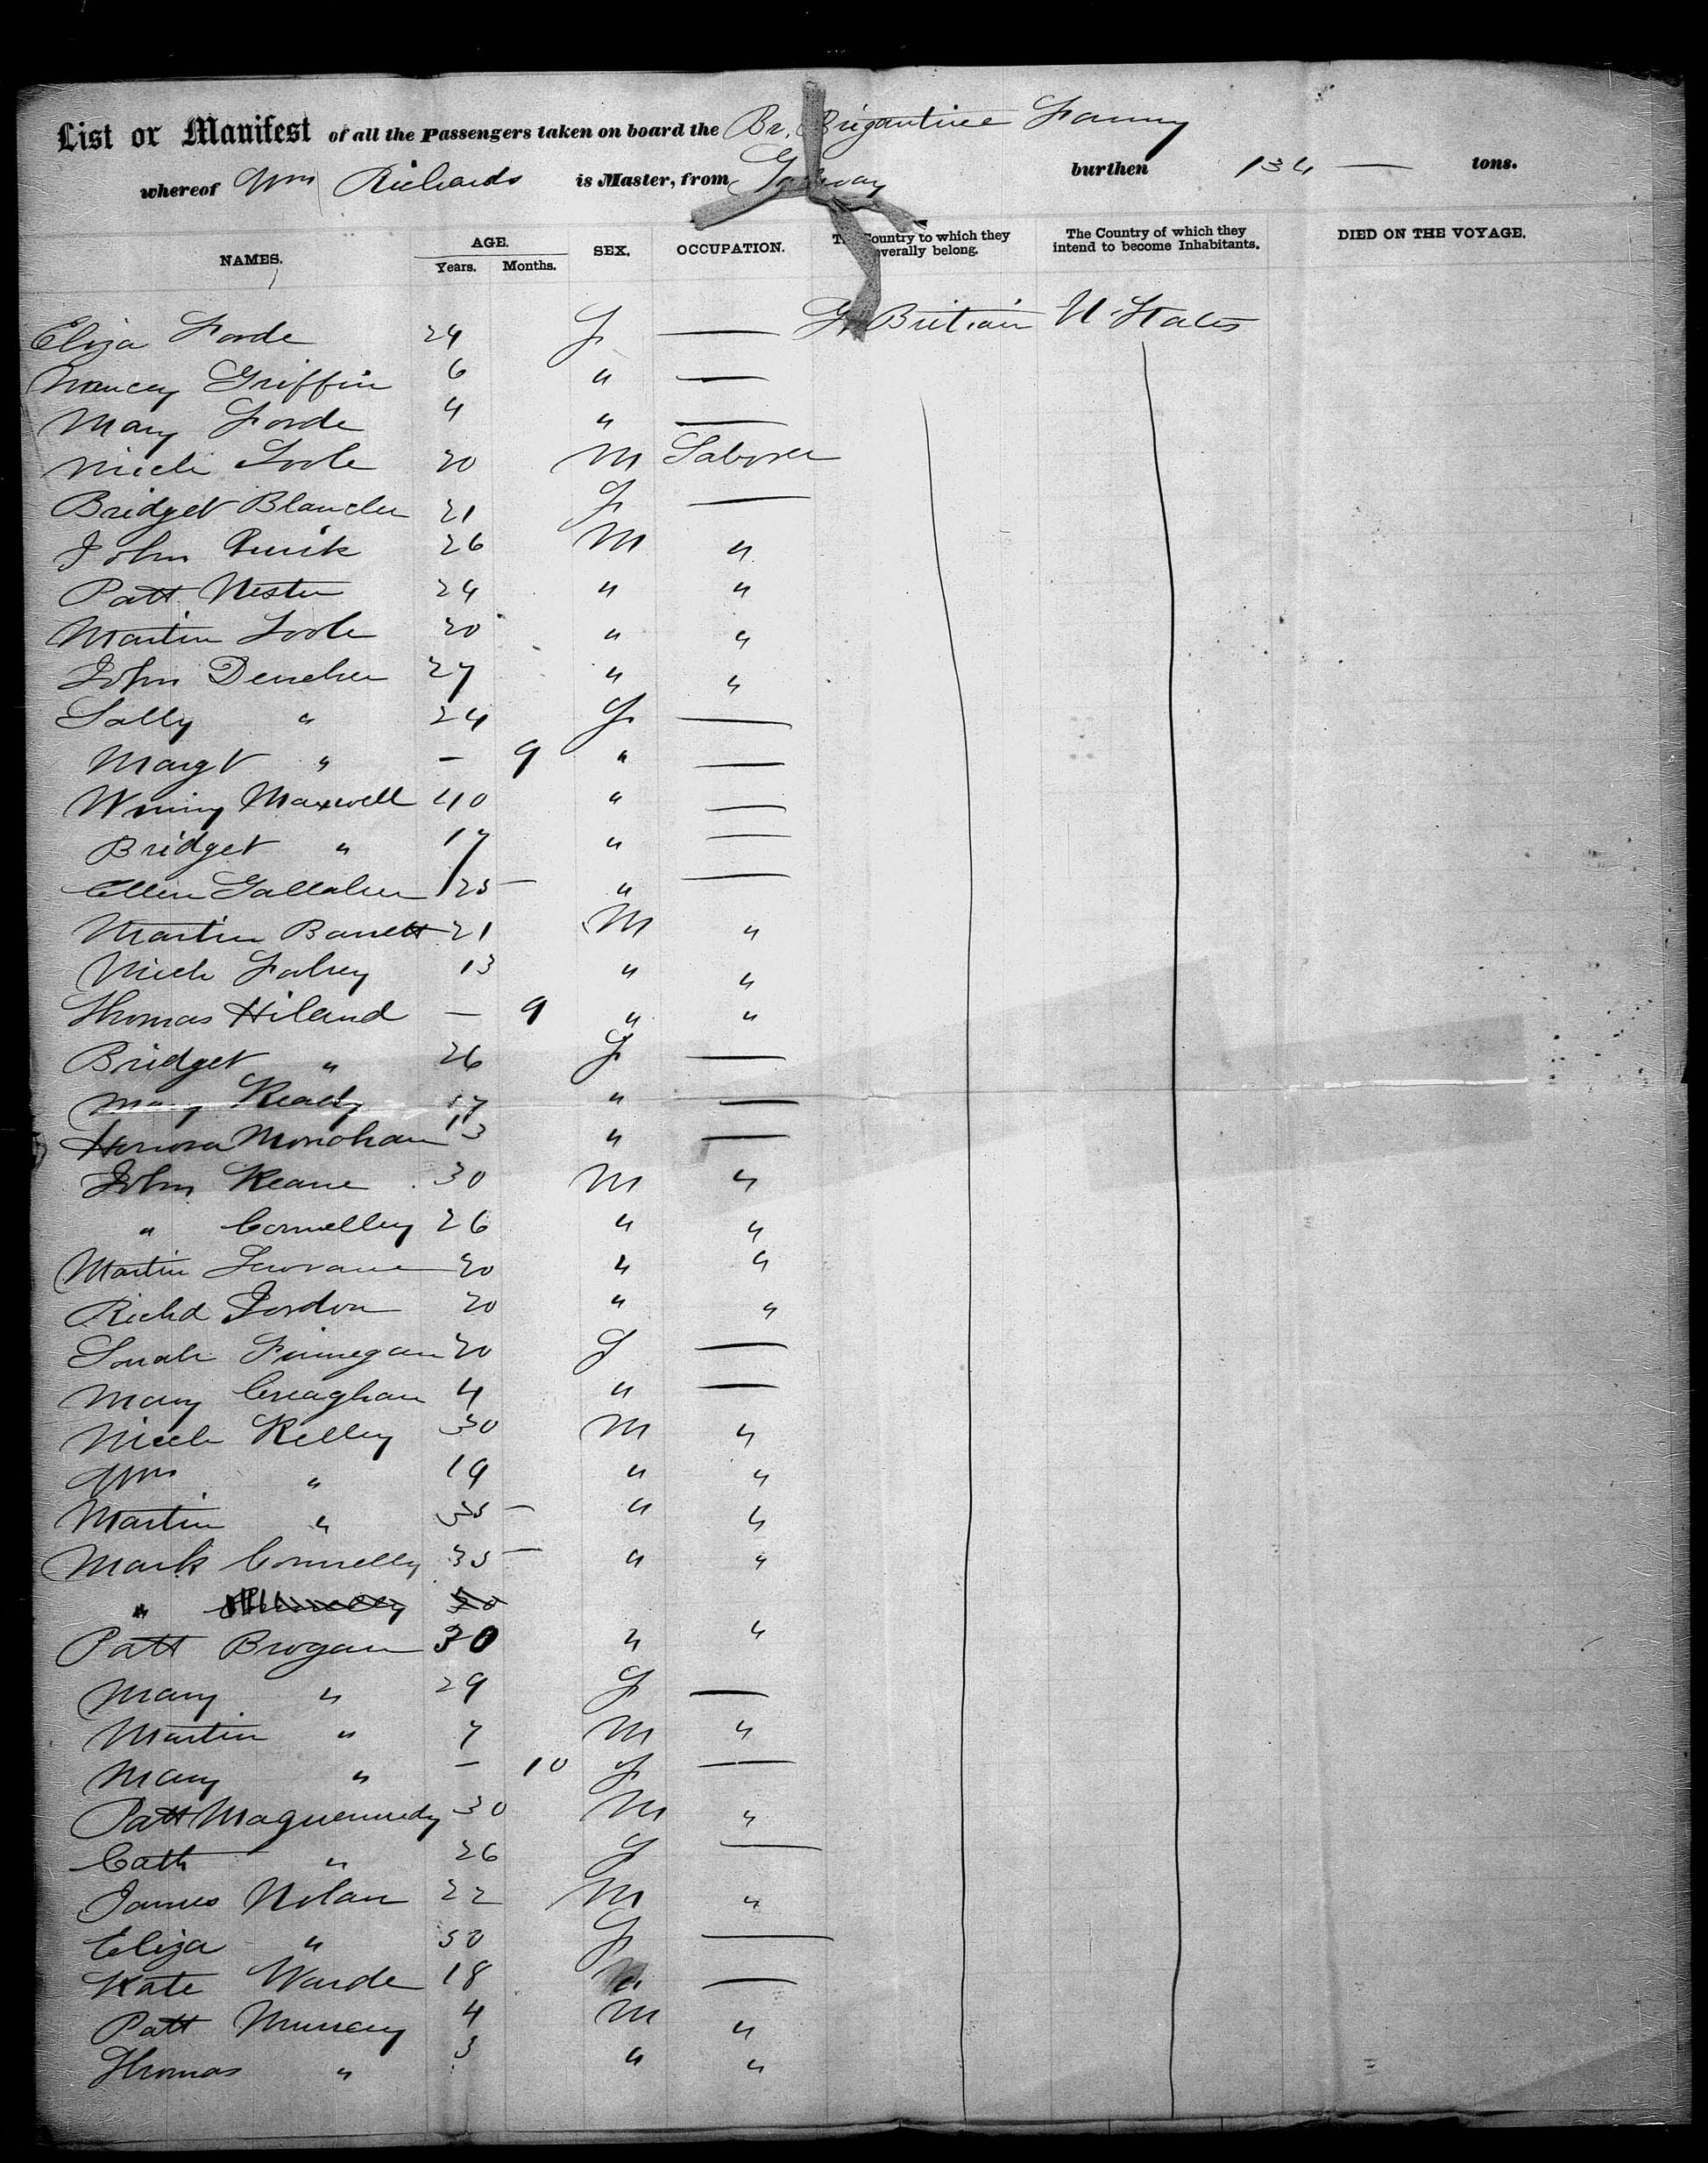 List or Manifest of all the Passengers taken on board the Br. Brigantine Fanny
whereof Wm Richards is Master, from Galway burthen 134 — tons.
NAMES. AGE. Years. Months. SEX. OCCUPATION. The Country to which they severally belong. The Country of which they intend to become Inhabitants. DIED ON THE VOYAGE.
Eliza Forde 24 F — Gt Britain U States
Nancy Griffin 6 " —
Mary Forde 4 " —
Mich Toole 20 M Laborer
Bridget Blanche 21 F —
John Quirk 26 M "
Patt Nestor 24 " "
Martin Toole 20 " "
John Deneher 27 " "
Sally " 24 F —
Margt " — 9 " —
Winny Maxwell 40 " —
Bridget " 17 " —
Ellen Gallaher 25 — " —
Martin Barrett 21 M "
Mich Fahey 13 " "
Thomas Hiland — 9 " "
Bridget " 26 F —
Mary Keady 17 " —
Honora Monohan 13 " —
John Keane 30 M "
" Connelley 26 " "
Martin 20 " "
Richd Jordon 20 " "
Sarah Finnegan 20 F —
Mary Creaghan 4 " —
Mich Kelley 30 M "
Wm " 19 " "
Martin " 35 — " "
Mark Connelly 35 — " "
"
Patt Brogan 30 " "
Mary " 29 F —
Martin " 7 M "
Mary " — 10 F —
Patt Maguennedy 30 M "
Cath " 26 F —
James Nolan 22 M "
Eliza " 50 F —
Kate Warde 18 " —
Patt Murray 4 M "
Thomas " 3 " "